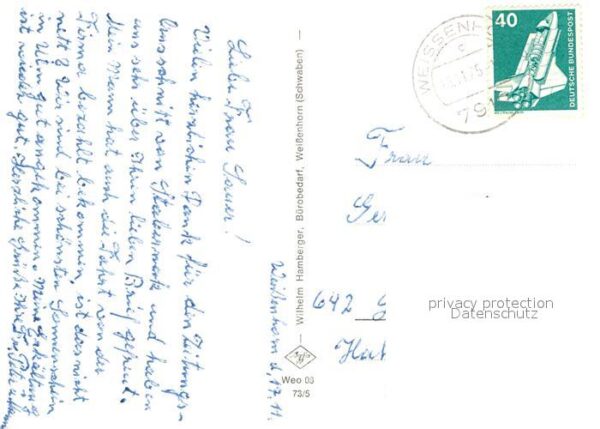 Weißenhorn d. 17.11.
Liebe Frau Sauer!
Vielen herzlichen Dank für den Zeitungs-
ausschnitt von Steiermark und haben
uns sehr über Ihren lieben Brief gefreut.
Mein Mann hat auch die Fahrt von der
Firma bezahlt bekommen, ist das nicht
nett? Wir sind bei schönstem Sonnenschein
in Ulm gut angekommen. Meine Erkältung
ist wieder gut. Herzliche Grüße Ihre Fr.
Wilhelm Hamberger, Bürobedarf, Weißenhorn (Schwaben)
Weo 03
73/5
WEISSENH
c
791
40
DEUTSCHE BUNDESPOST
Frau
Ger
642
Hat
privacy protection
Datenschutz